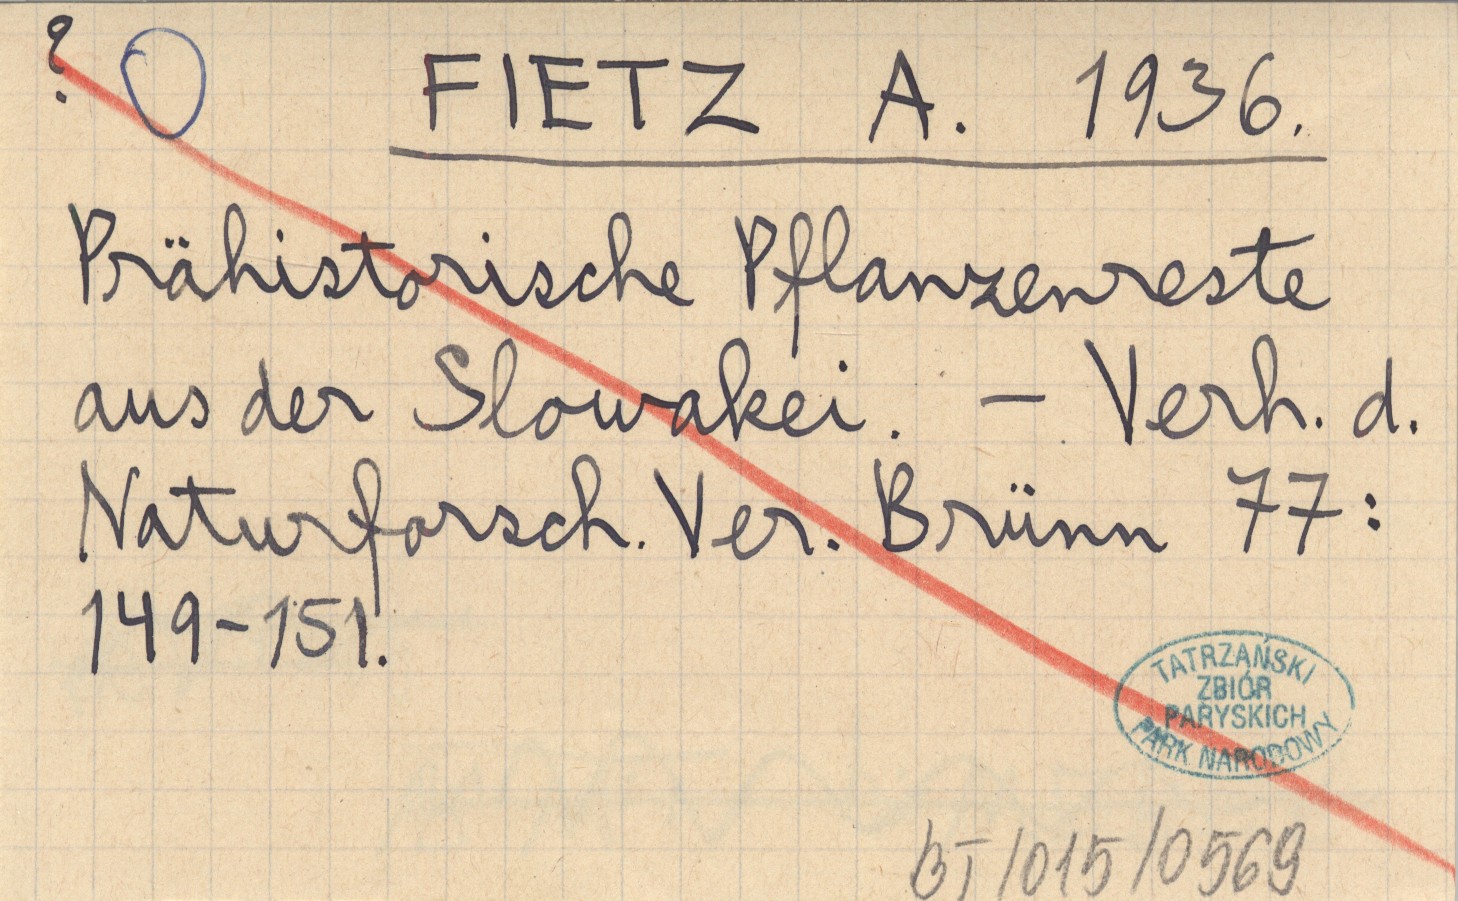 ?
FIETZ A. 1936.
Prähistorische Pflanzenreste
aus der Slowakei. — Verh. d.
Naturforsch. Ver. Brünn 77:
149-151.
TATRZAŃSKI
ZBIÓR
PARYSKICH
PARK NARODOWY
BT/015/0569